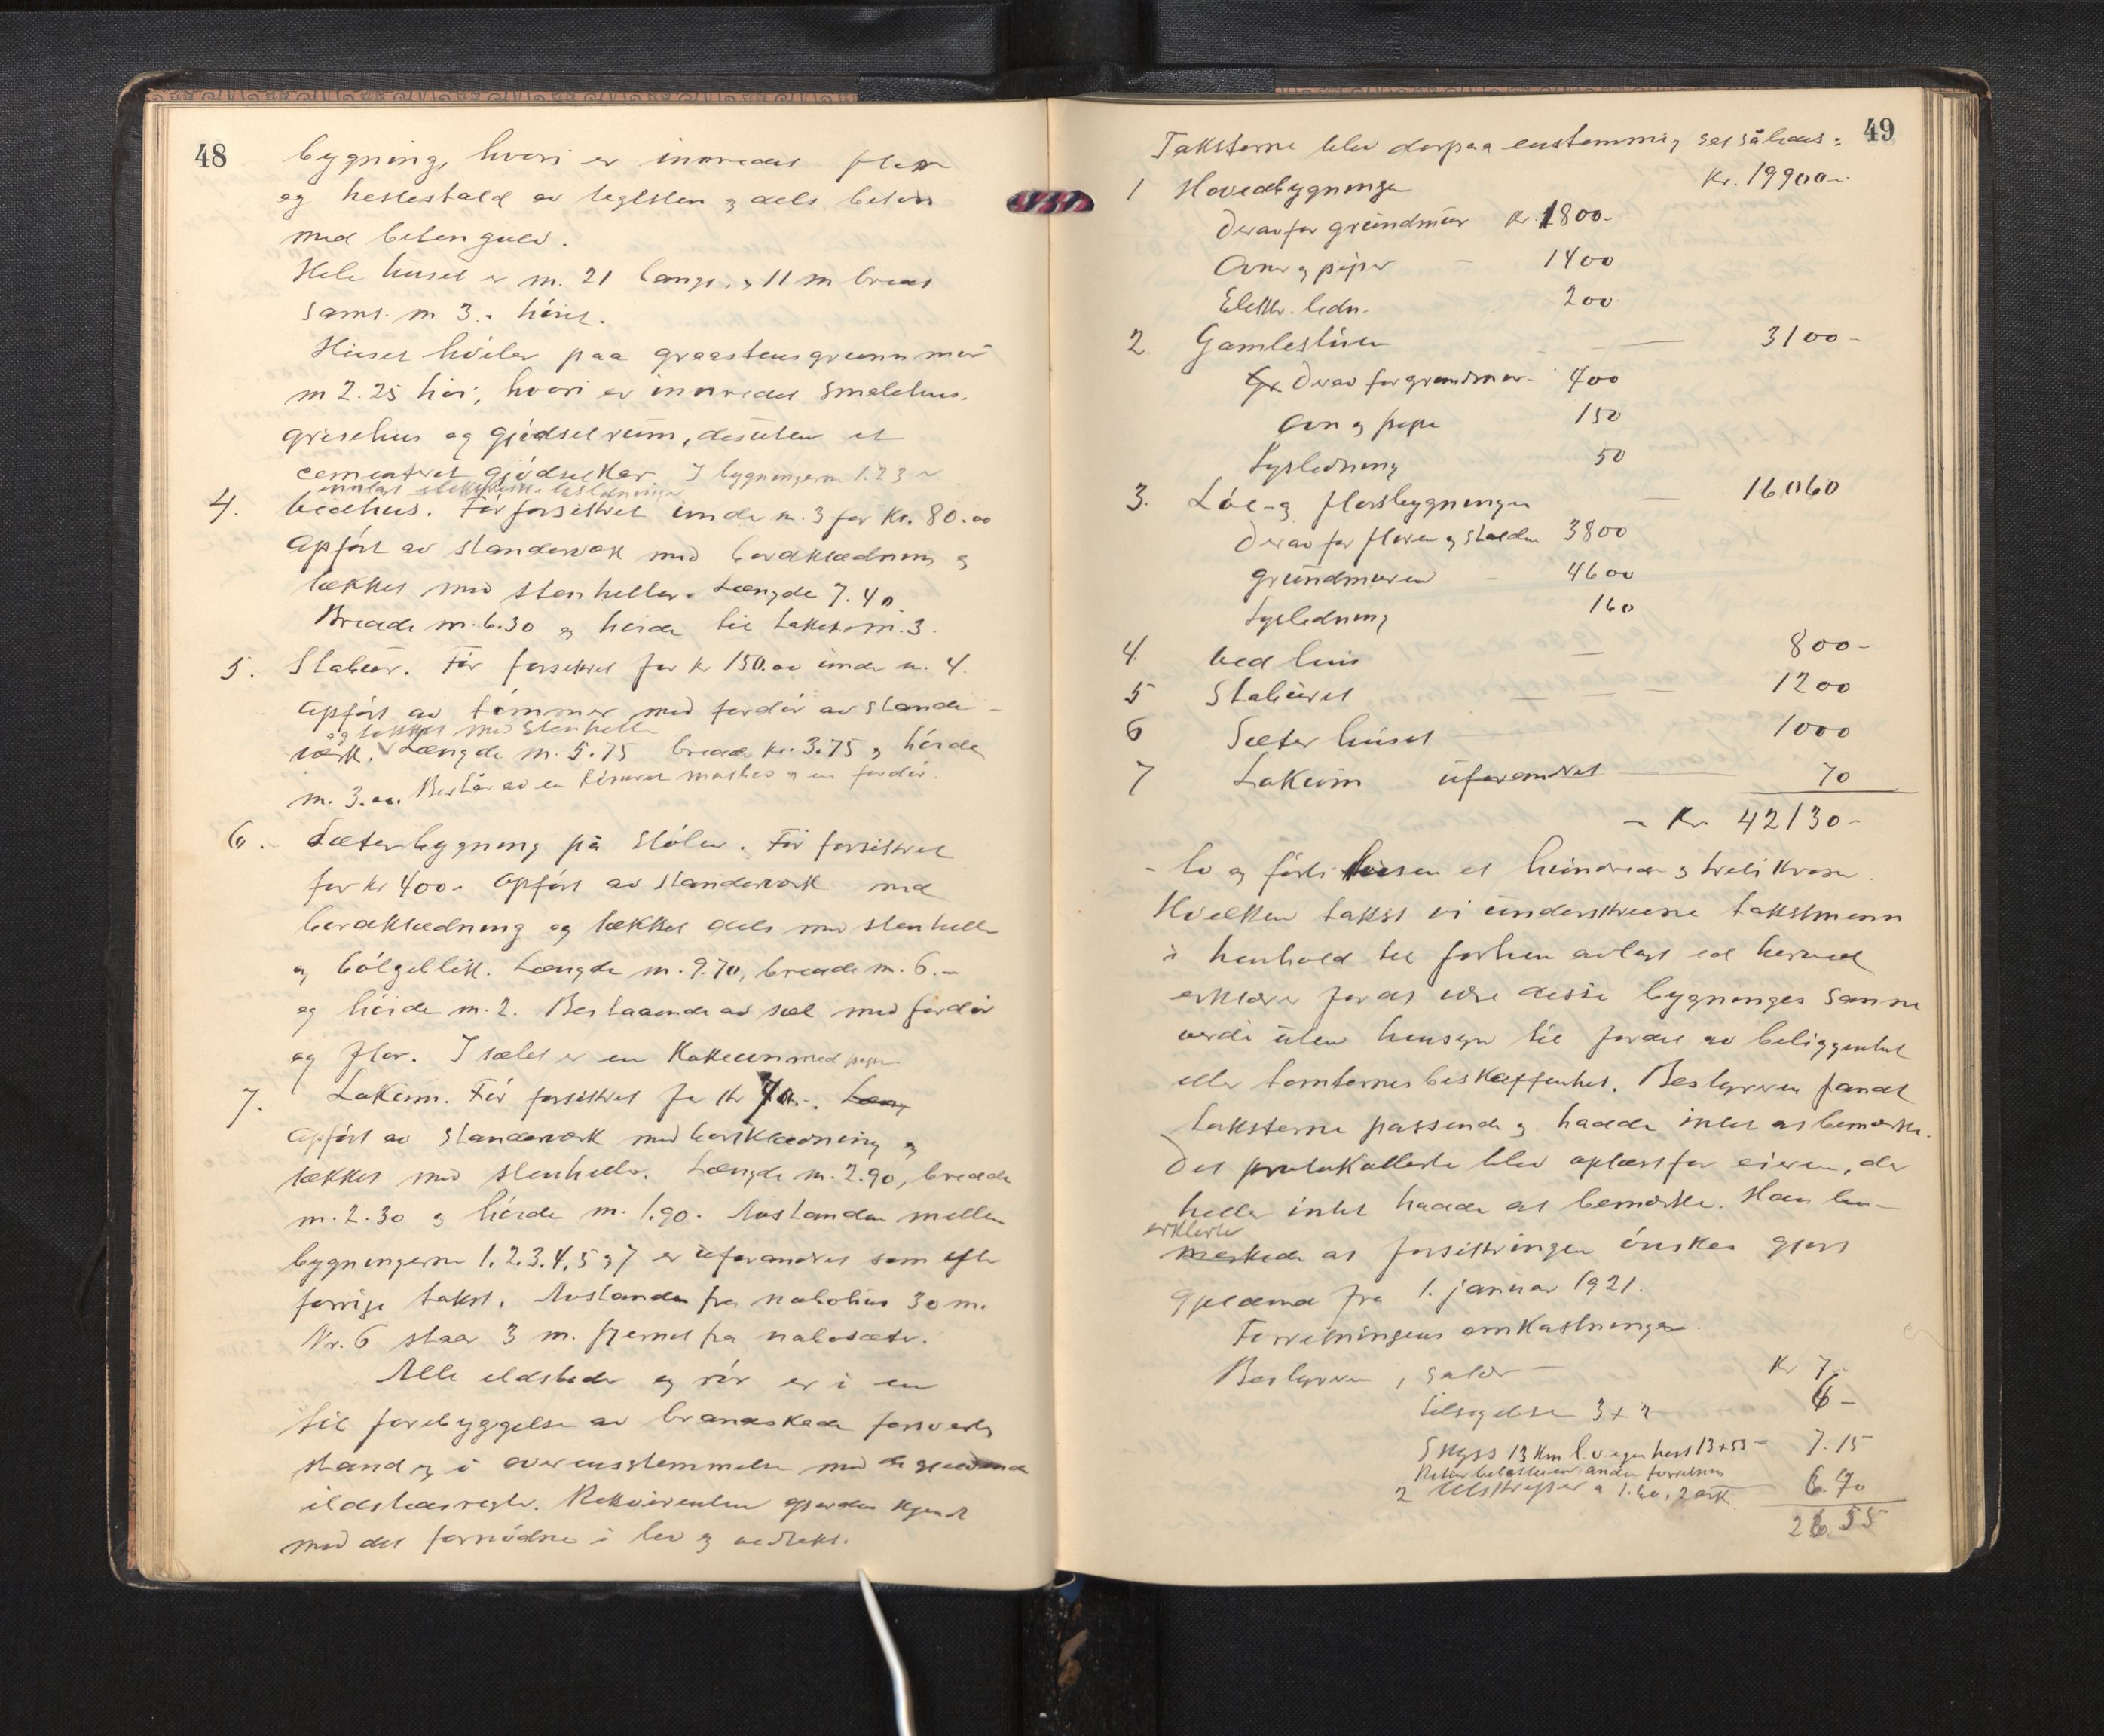 48
bygning, hvori er innredet flor
og hestestald av teglsten og dels beton
med betongulv.
Hele huset er m. 21 langt, og 11 m bredt
samt m. 3.- høit.
Huset hviler paa graastensgrunnmur
m 2.25 høi, hvori er innredet smalehus,
grisehus og gjødselrum, desuten et
cementeret gjødselkar. I bygningerne 1.2.3 er
innlagt elektriske lysledninger
4. Vedhus. Før forsikret under n. 3 for Kr. 80.00
Opført av standerverk med bordklædning og
tækket med stenheller. Længde 7.40
Bredde m. 6.30 og høide til taket m. 3.
5. Stabur. Før forsikret for kr 150.00 under n. 4.
Opført av tømmer med fordør av stander-
og tækket med stenheller
værk. Længde m. 5.75 bredde kr. 3.75 og høide
m. 3.00. Består av en tømret matbu og en fordør.
6. Sæterbygning på Stølen. Før forsikret
for kr 400.- Opført av standerværk med
bordklædning og tækket dels med stenheller
og bølgeblikk. Længde m. 9.70, bredde m. 6.-
og høide m. 2. Bestaaende av sæl med fordør
og flor. I sælet er en kakkelovn med pipe
7. Lakum. Før forsikret for kr 70.-. Læng
Opført av standerværk med bordklædning og
tækket med stenheller. Længde m. 2.90, bredde
m. 2.30 og høide m. 1.90. Avstanden mellem
bygningerne 1.2.3.4,5 og 7 er uforandret som efter
forrige takst. Avstanden fra nabohus 30 m.
Nr. 6 staar 3 m. fjernet fra nabosæter.
Alle ildsteder og rør er i en
til forebyggelse av brandskade forsvarlig
stand og i overensstemmelse med de gjeldende
ildstedsregler. Rekvirenten gjordes kjendt
med det fornødne i lov og vedtekt.
49
Taksterne blev derpaa enstemmig sat således:
1 Hovedbygningen Kr. 19900.-
Derav for grundmur Kr. 1800.-
Ovner og piper - 1400
Elektr. ledn. 200
2. Gamlestuen 3100-
Gr Derav for grundmur - 400
Ovn og pipe 150
Lysledning 50
3. Løe- og florsbygningen 16060
Derav for floren og stalden 3800
grundmuren - 4600
Lysledning 160
4. Vedhus 800-
5 Staburet 1200
6 Sæterhuset 1000
7 Lakum uforandret 70
- Kr. 42130-
- to og førti tusen et hundrede og tretti kroner.
Hvilken takst vi understrevne takstmenn
i henhold til forhen avlagt ed herved
erklærer for at være disse bygninger sanne
værdi uten hensyn til fordel av beliggenhet
eller tomternes beskaffenhet. Bestyreren fandt
taksterne passende og hadde intet at bemerke.
Det protokollerte blev oplæst for eieren, der
heller intet hadde at bemerke. Han be-
erklærte
merkede at forsikringen ønskes gjort
gjeldende fra 1. januar 1921.
Forretningens omkostninger.
Bestyreren, salær - Kr 7.-
tilsigelser 3 x 2 6-
Skyss 13 km l.v. egen hest 13 x 55 - 7.15
Retur belastes en anden forretning
2 utskrifter a 1.60, 2 ark 6.70
26.55